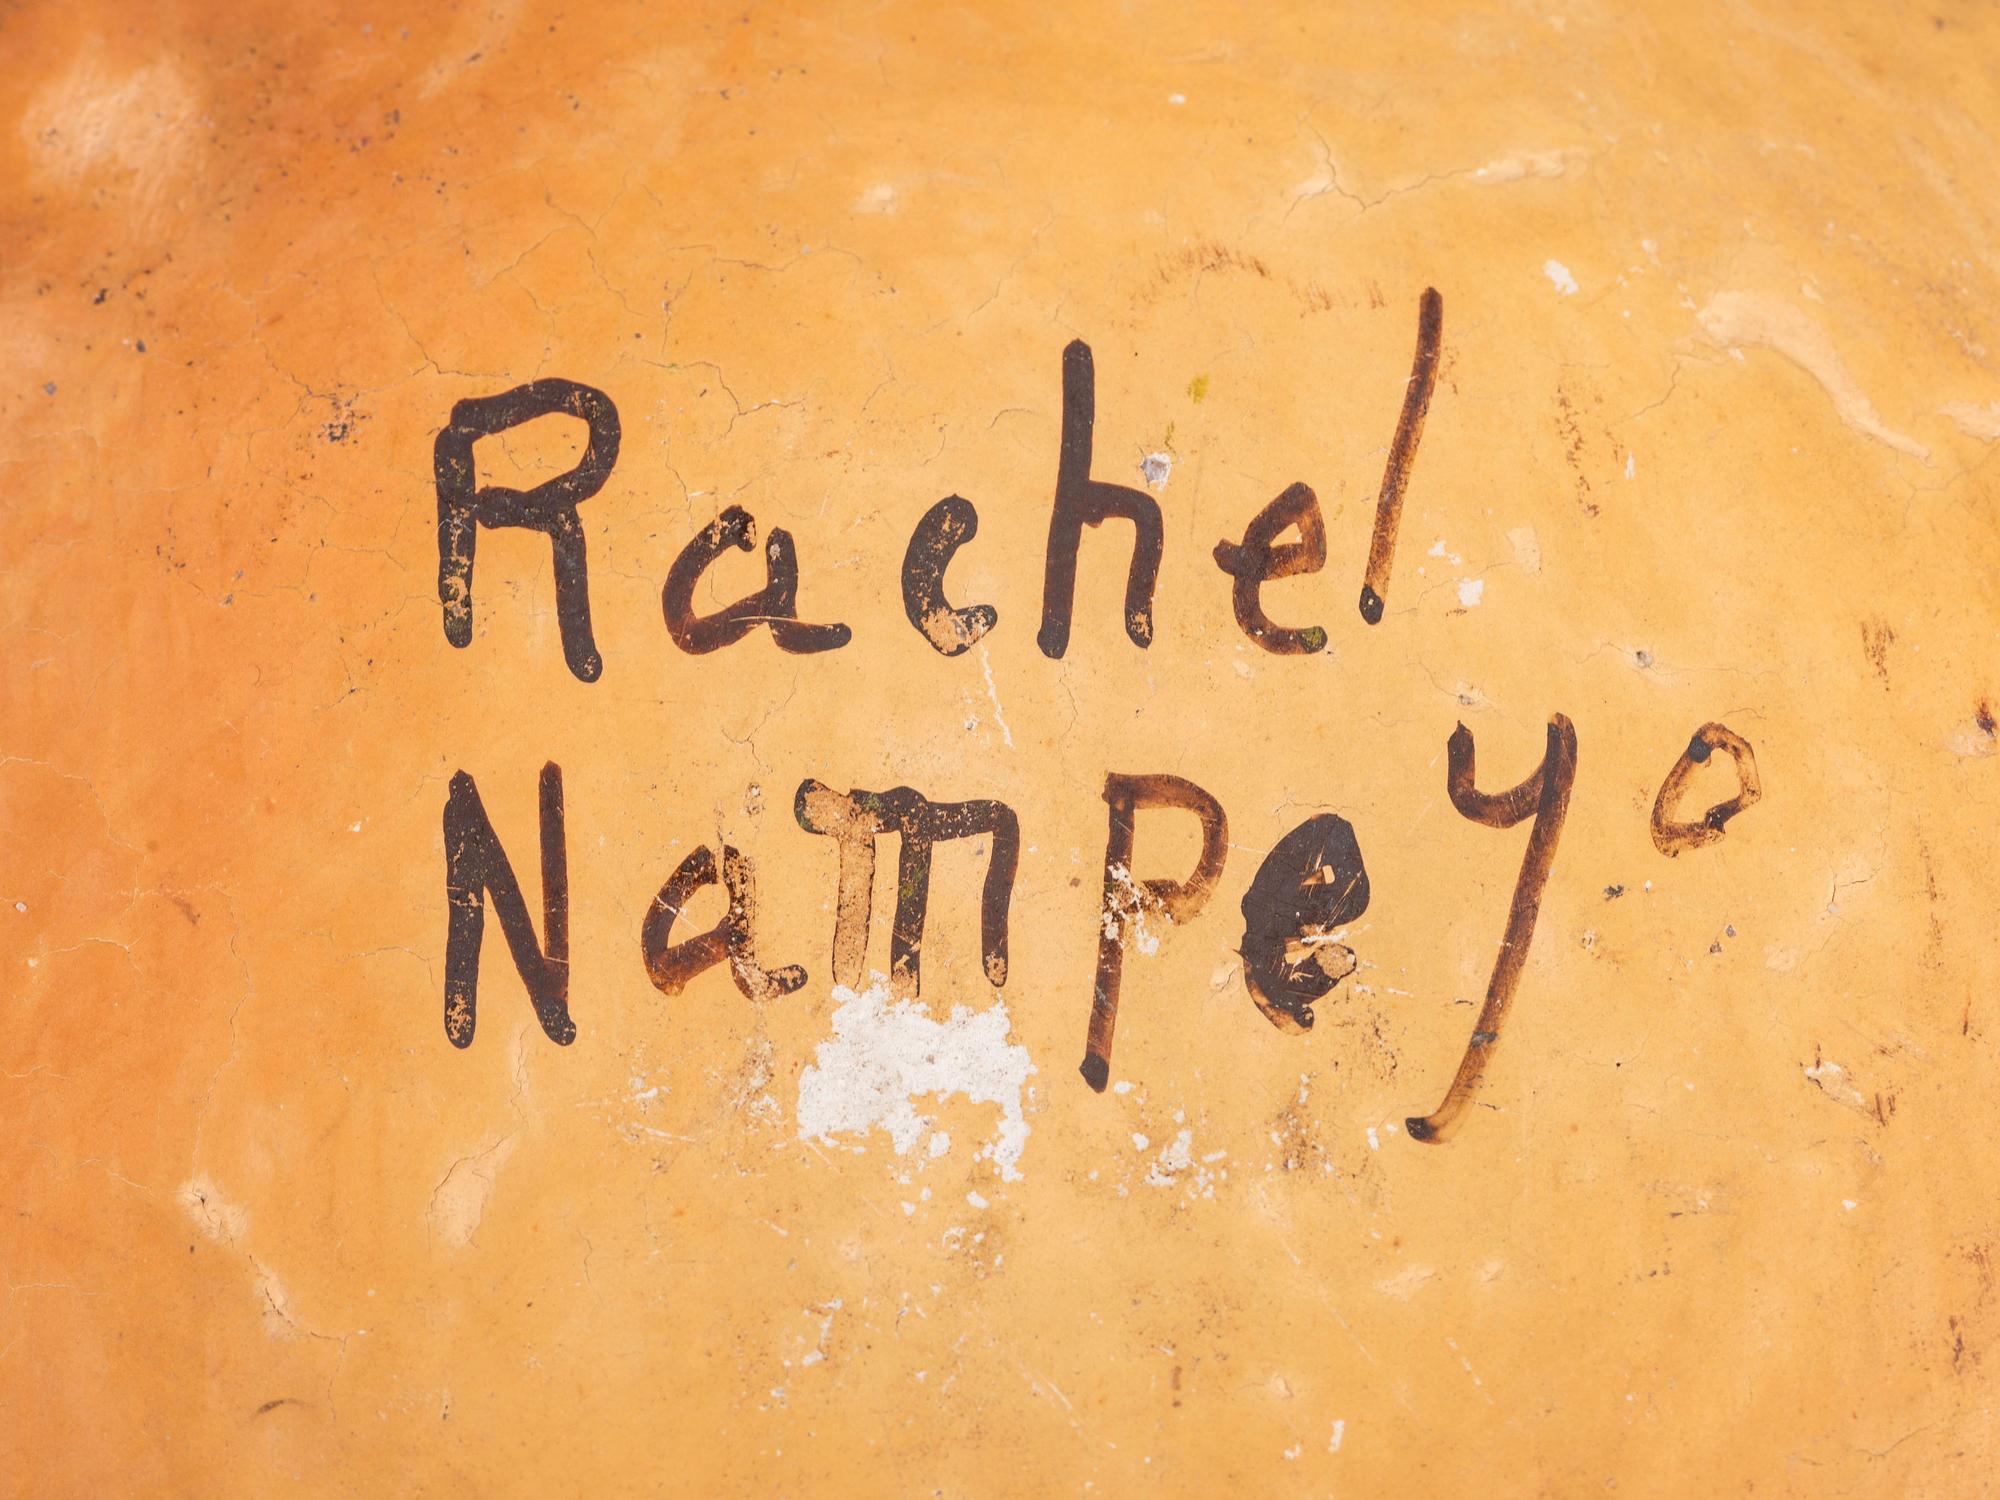 Rachel
Nampeyo